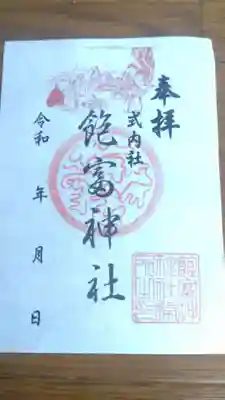 奉拝
式内社
飽富神社
令和 年 月 日